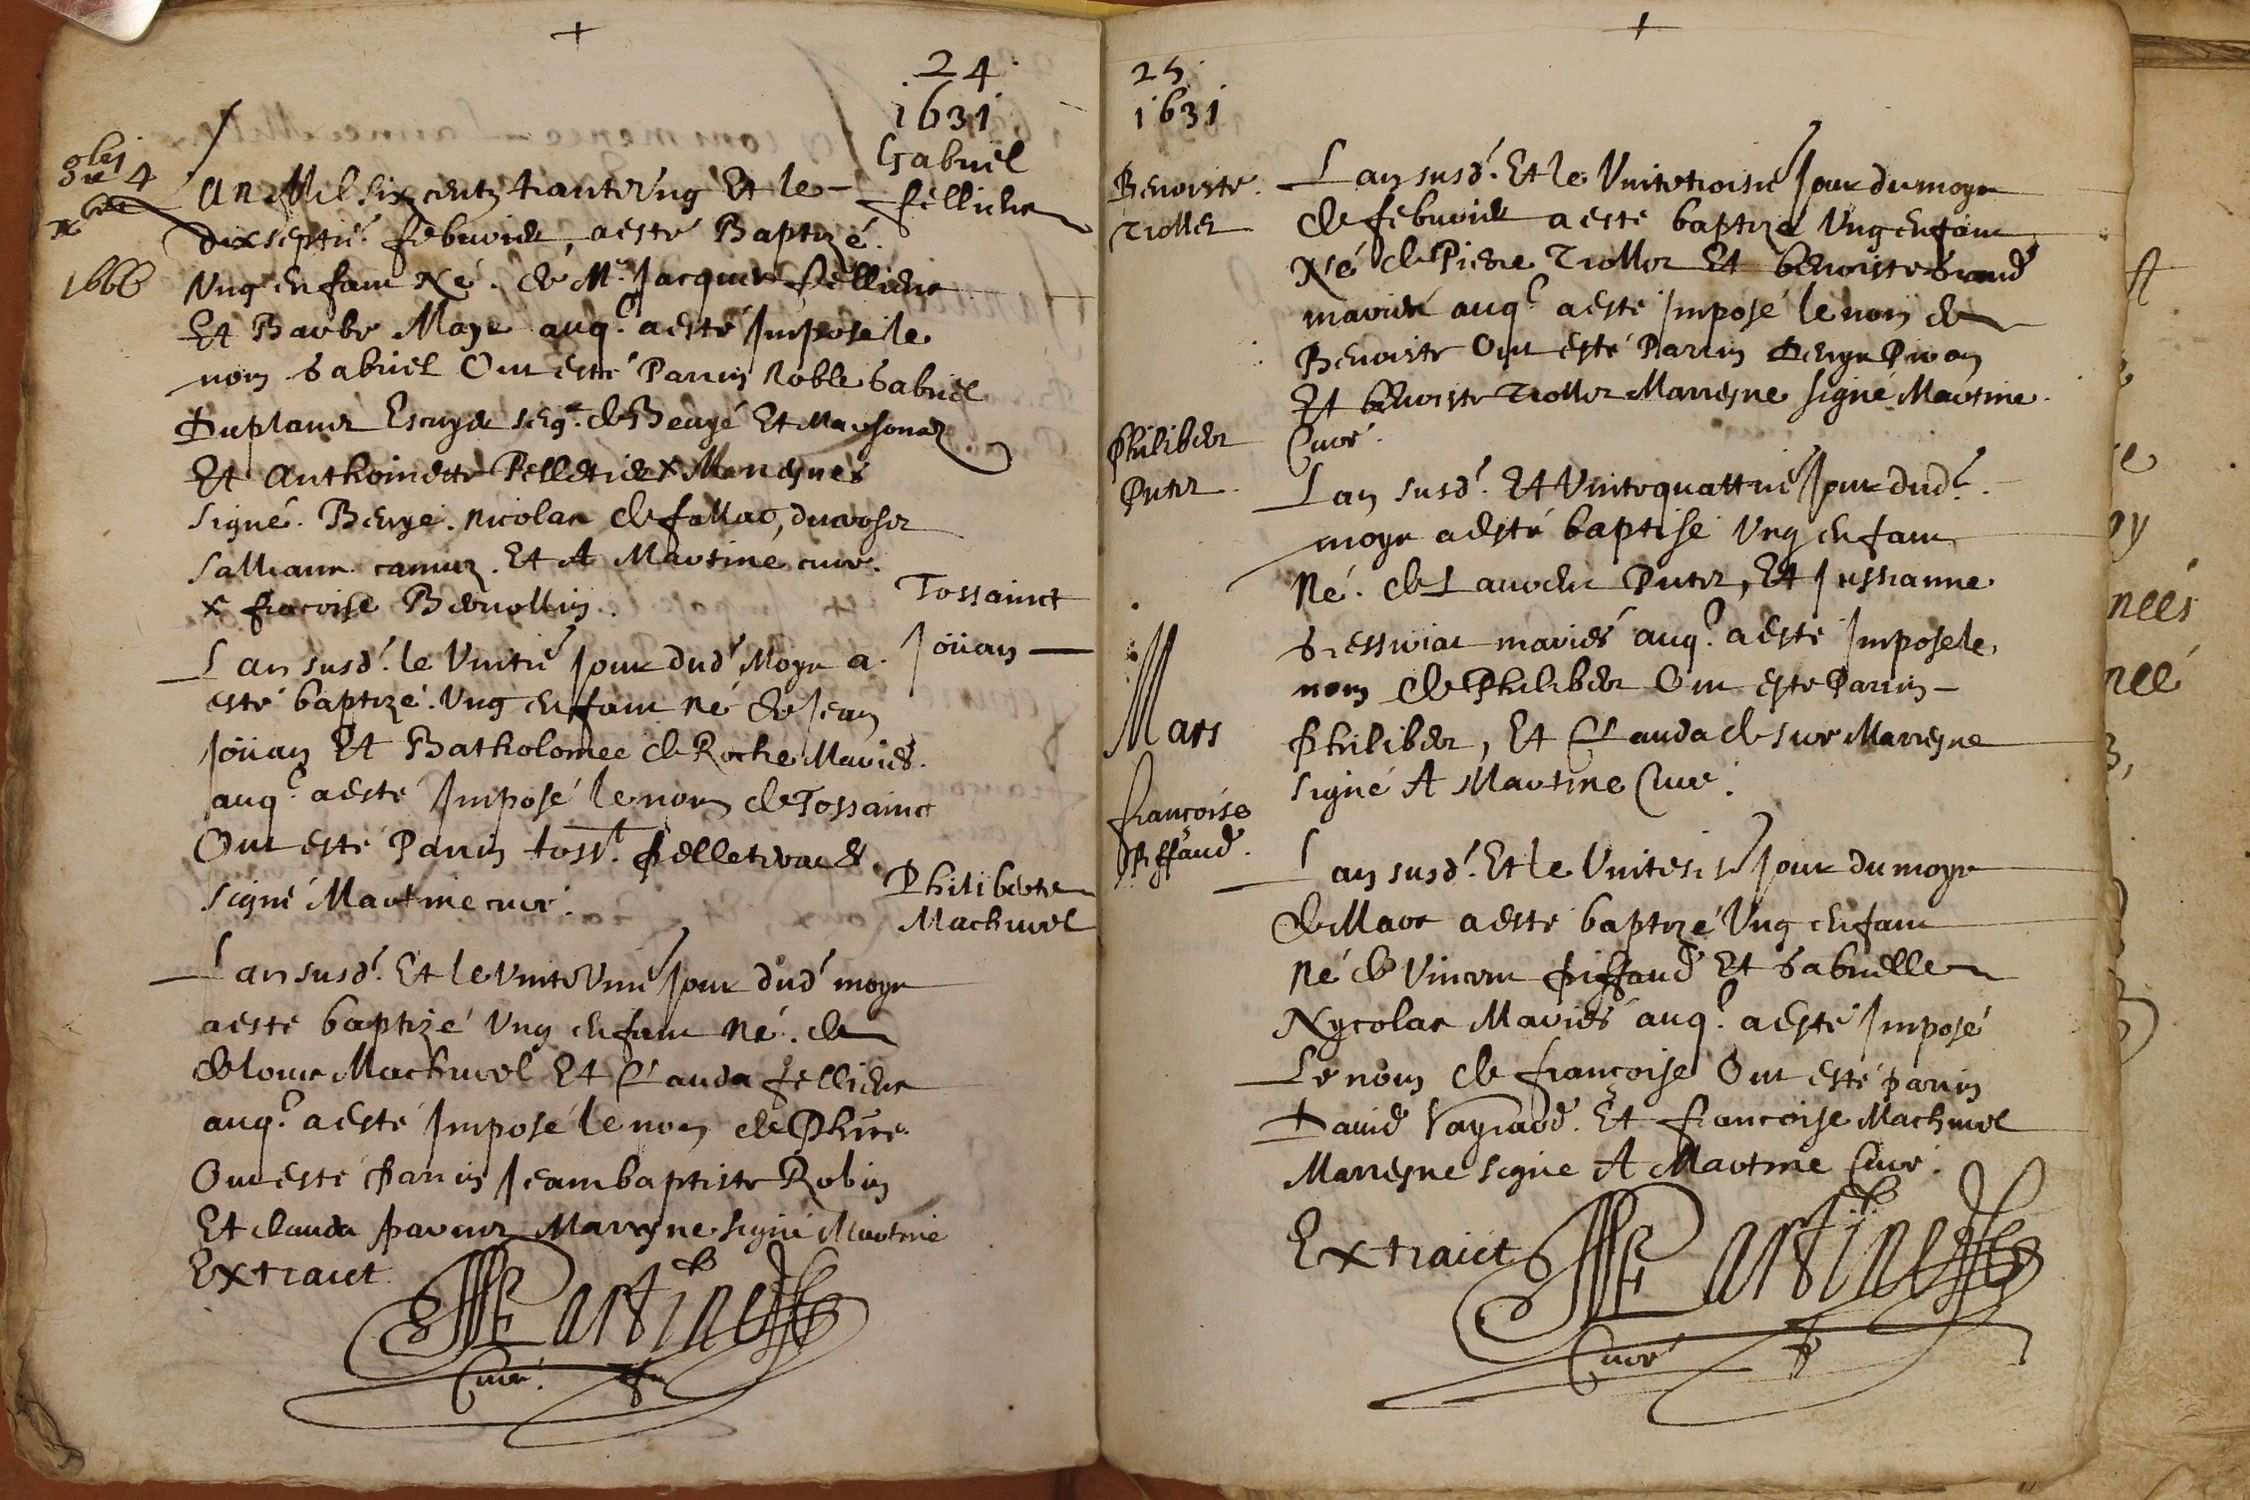 24
1631
Gabriel
Fellichr
1666
L an Mil six centz trante Ung Et le
dixseptie. febvrier, a esté Baptizé.
Ung enfant Né. de Mr. Jacques Fellichr
Et Barbe Maye auq. a esté Imposé le
nom Gabriel Ont esté Parrin Noble Gabriel
Duplanez Escuyer seigr. de Beugé Et Maisonez
Et Anthoinette Pelletier x Marregnes
Signé. Beuge. Nicolar de
Et A Martine, cure.
x francoise
Tossainct
Joüan
L an susd. le Vintie Jour dud Moys a.
esté baptizé. Ung enfant né de Jean
Joüan Et Batholomee de Roche Mariés.
auq. a esté Imposé le nom de Tossainct
Ont esté Parrin tosst.
signé Martine curé.
Philiberte
Machurel
L an susd. Et le vinte Unie Jour dud moys
a esté baptizé Ung enfant Né. de
de Machurel Et Clauda fellichr
auq. a esté Imposé le nom de
Ont esté Parrin Jeanbaptiste Robin
Et Clauda Marregne signé Martine
Extraict
Martine
Curé.
25
1631
Benoiste
Trollier
L an susd. Et le Vintetroisie Jour du moys
de febvrier a esté baptizé Ung enfant
Né de Pierre Trollier Et benoiste
mariés auq. a esté Imposé le nom de
Benoiste Ont esté Parrin Denys
Et benoiste Trollier Marregne signé Martine.
Curé.
Philiber
Puter
L an susd. Et Vintequattrie Jour dud.
moys a esté baptisé Ung enfant
Né. de Puter, Et
mariés auq. a esté Imposé le
nom de Philiber Ont esté Parrin
Philiber, Et Clauda de Marregne
Signé A Martine Curé.
Mars
françoise
Piffaud.
L an susd. Et le Vintesixie Jour du moys
de Mars a esté baptizé Ung enfant
Né de Vincent Piffaud Et Gabrielle
Nycolar Mariés auq. a esté Imposé
Le nom de françoise Ont esté parrin
David Vayraud. Et francoise Machurel
Marregne signé A Martine Curé.
Extraict
Martine
Curé